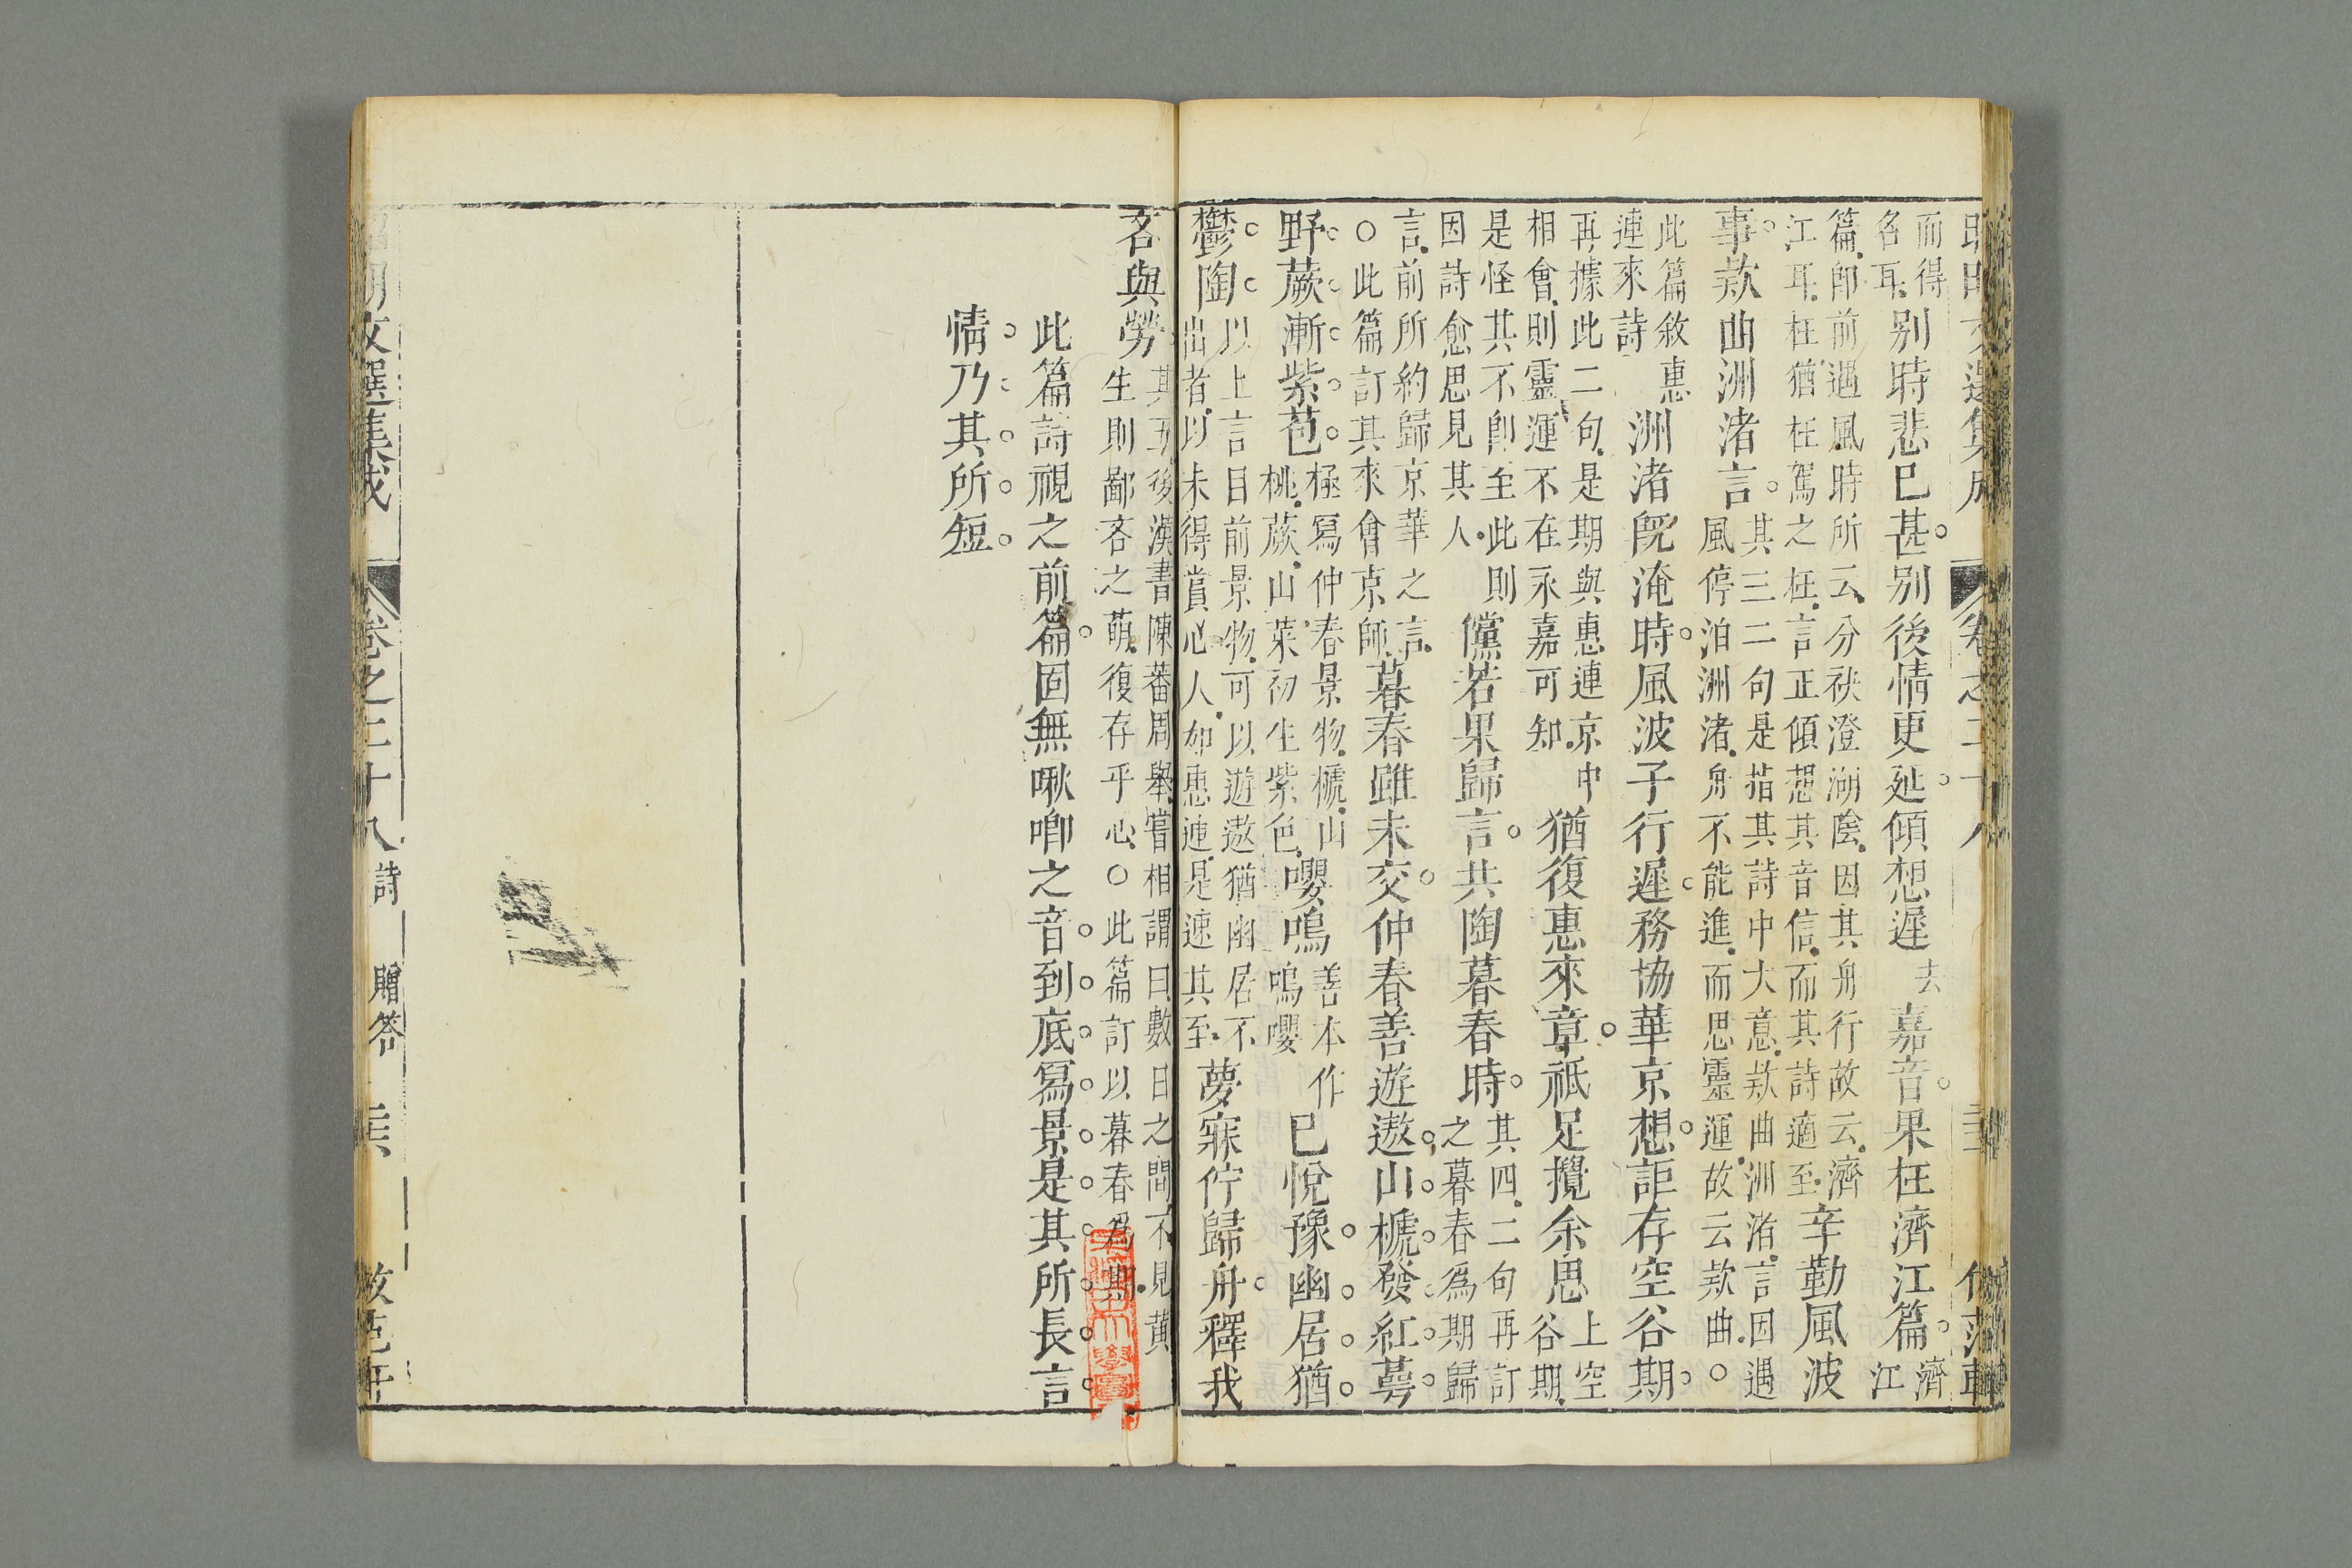 而得
名耳。
別時悲已甚。別後情更延。傾想遲
去
嘉音。果枉濟江篇。
濟
江
篇。卽前遇風時所云。分袂澄湖陰。因其舟行故云。濟
江耳。枉猶枉駕之枉。言正傾想其音信。而其詩適至。
辛勤風波
事。欵曲洲渚言。
其三二句是指其詩中大意。欵曲洲渚。言因遇
風停泊洲渚。舟不能進。而思靈運。故云欵曲。○
此篇敘惠
連來詩
洲渚旣淹時。風波子行遲。務協華京想。詎存空谷期。
再據此二句。是期與惠連京中
相會。則靈運不在永嘉可知。
猶復惠來章。祗足攪余思
上空
谷期。
是怪其不卽至此則
因詩愈思見其人。
儻若果歸言。共陶暮春時。
其四。二句再訂
之暮春爲期歸
言。前所約歸京華之言。
○此篇訂其來會京師。
暮春雖未交。仲春善遊遨。山榹發紅萼。
野蕨漸紫苞。
極寫仲春景物。榹。山
桃。蕨。山菜初生紫色。
嚶鳴
善本作
鳴嚶
已悅豫。幽居猶
鬱陶。
以上言目前景物。可以遊遨猶幽居不
出者。以未得賞心人。如惠連。是速其至。
夢寐佇歸舟。釋我
吝與勞
其五後漢書陳蕃周舉嘗相謂曰數日之間不見黃
生則鄙吝之萌。復存乎心。○此篇訂以暮春爲期。
此篇詩視之前篇。固無啾唧之音。到底寫景是其所長。言
情。乃其所短。
昭明文選集成 卷之二十八 詩 贈答